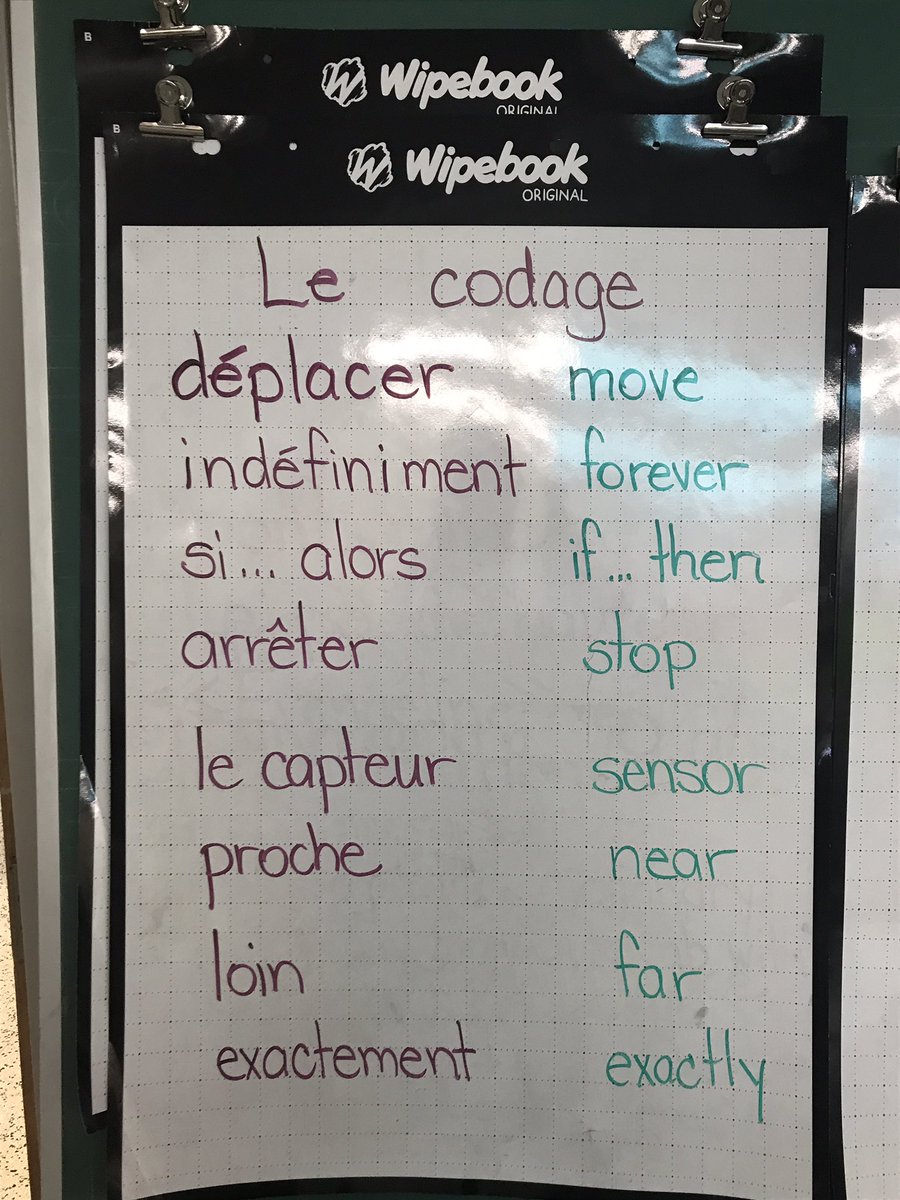 B
Wipebook
ORIGINAL
B
Wipebook
ORIGINAL
Le codage
déplacer move
indéfiniment forever
si... alors if... then
arrêter stop
le capteur sensor
proche near
loin far
exactement exactly